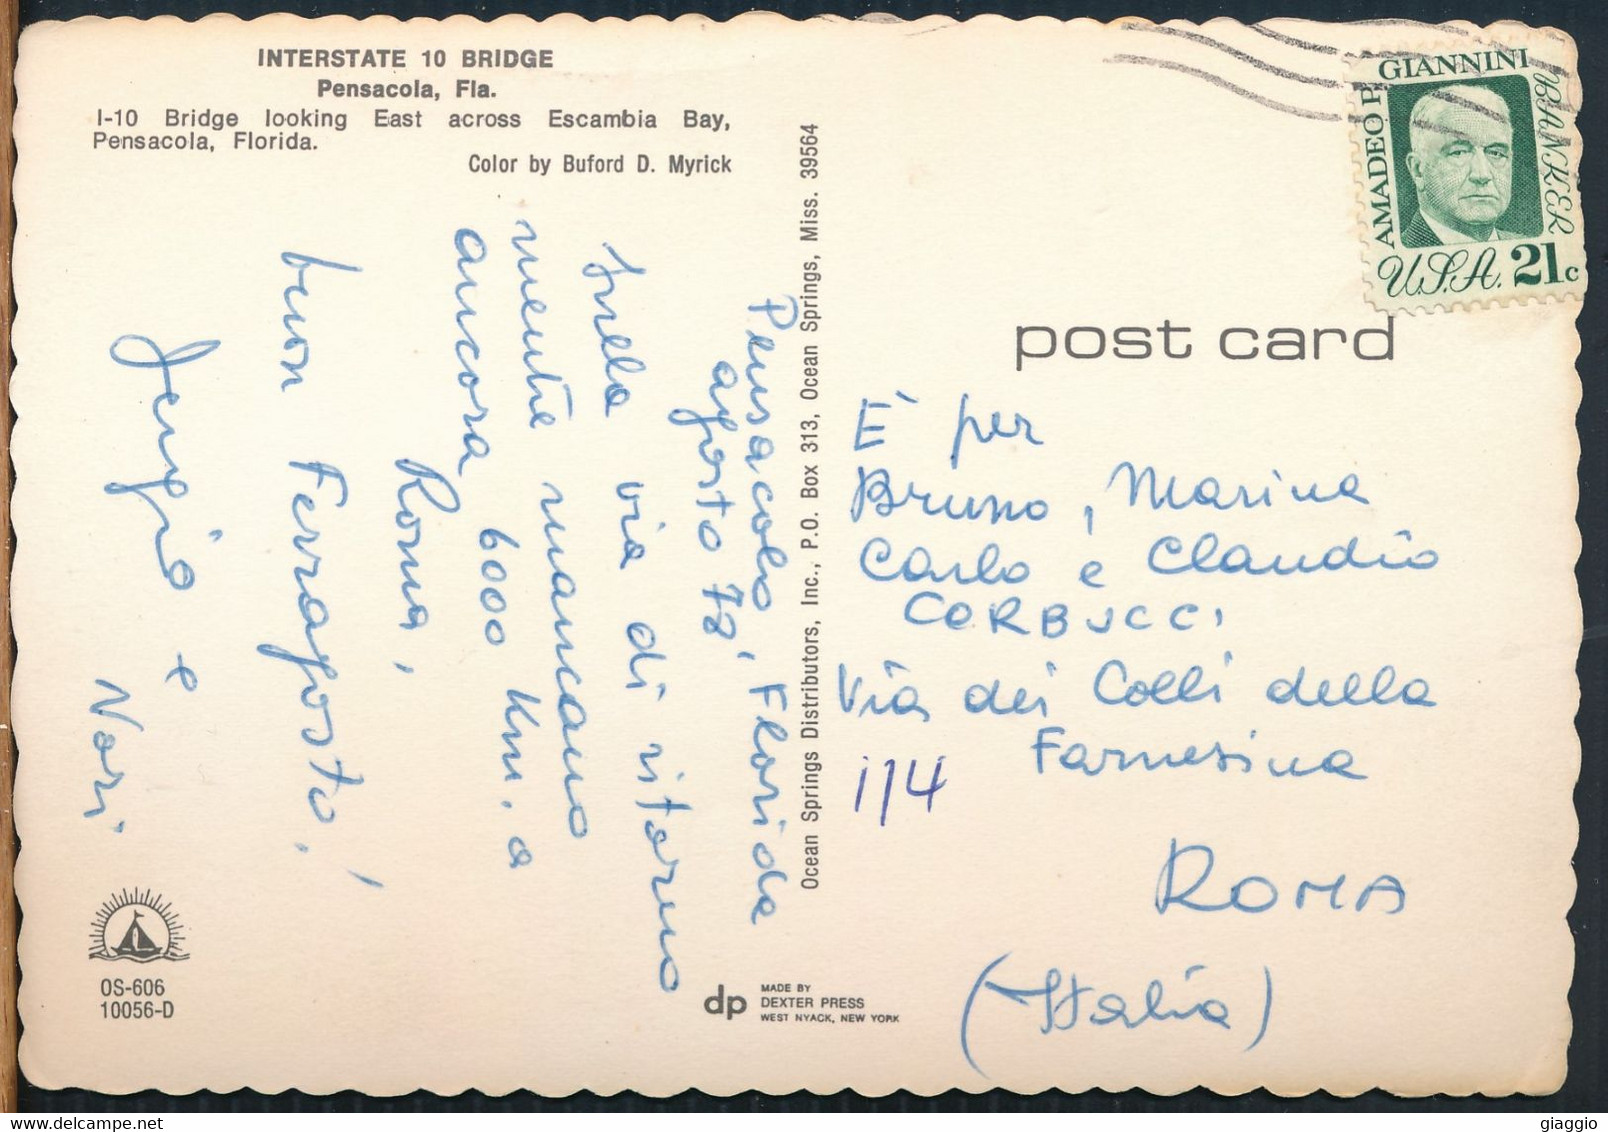 INTERSTATE 10 BRIDGE
Pensacola, Fla.
I-10 Bridge looking East across Escambia Bay,
Pensacola, Florida.
Color by Buford D. Myrick
Pensacola, Florida
agosto 78,
sulla via di ritorno
mentre mancano
ancora 6000 km. a
Roma,
buon Ferragosto!
e
Nori.
OS-606
10056-D
Ocean Springs Distributors, Inc., P.O. Box 313, Ocean Springs, Miss. 39564
dp
MADE BY
DEXTER PRESS
WEST NYACK, NEW YORK
AMADEO P. GIANNINI BANKER
U.S.A. 21c
post card
È per
Bruno, Marina
Carlo e Claudio
CORBUCCI
Via dei Colli della
Farnesina
114
ROMA
(Italia)
giaggio